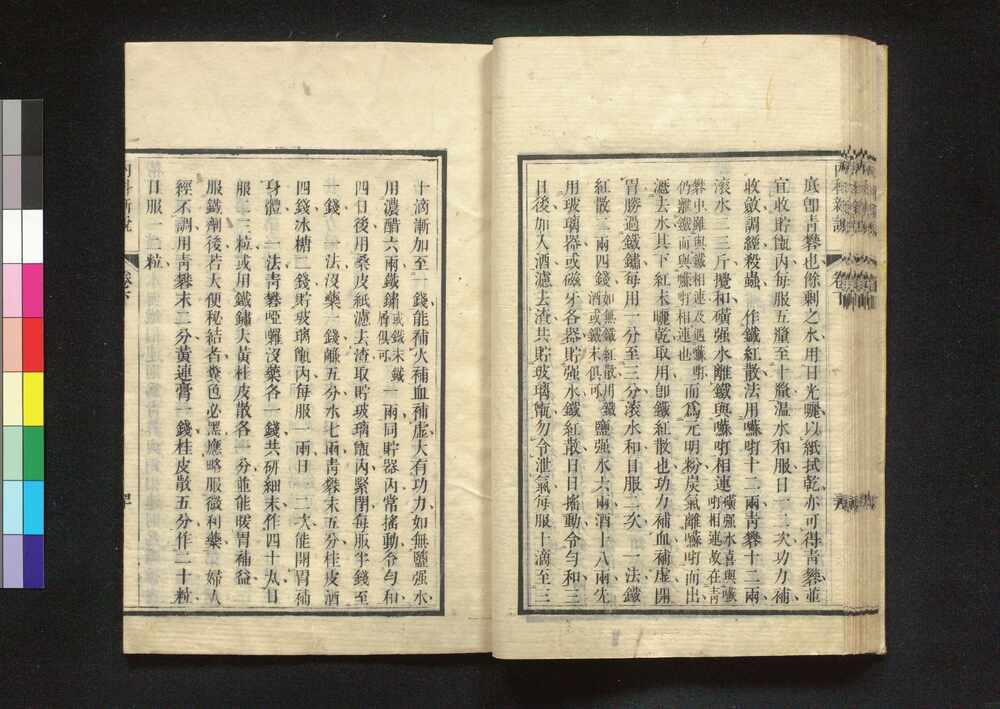 底卽青礬也餘剩之水用日光曬以紙拭乾亦可得青礬並
宜收貯甁內每服五釐至十釐溫水和服日二三次功力補
收斂調經殺蟲 作鐵紅散法用囌吖十二兩青礬十二兩
滾水二三斤攪和磺强水離鐵與囌吖相連磺强水喜與囌吖相連故在青
礬中離與鐵相連及遇囌吖仍離鐵而與囌吖相連也而爲元明粉炭氣離囌吖而出
瀝去水其下紅末曬乾取用卽鐵紅散也功力補血補虛開
胃勝過鐵鏽每用一分至三分滾水和日服二次 一法鐵
紅散二兩四錢如無鐵紅散用鐵酒或鐵末俱可鹽强水六兩酒十八兩先
用玻璃器或磁牙各器貯强水鐵紅散日日搖動令勻和三
日後加入酒濾去渣共貯玻璃甁勿令泄氣每服十滴至三
十滴漸加至一錢能補火補血補虛大有功力如無鹽强水
用濃醋六兩鐵鏽或鐵末鐵屑俱可一兩同貯器內常搖動令勻和
四日後用桑皮紙濾去渣取貯玻璃甁內緊閉每服半錢至
一錢 一法沒藥一錢鹻五分水七兩青礬末五分桂皮酒
四錢冰糖二錢貯玻璃甁內每服一兩日一二次能開胃補
身體 一法青礬啞囉沒藥各一錢共研細末作四十丸日
服二三粒或用鐵鏽大黃桂皮散各一分並能暖胃補益
服鐵劑後若大便秘結者糞色必黑應略服微利藥 婦人
經不調用青礬末二分黃連膏一錢桂皮散五分作二十粒
日服一二粒
內科新說 卷下